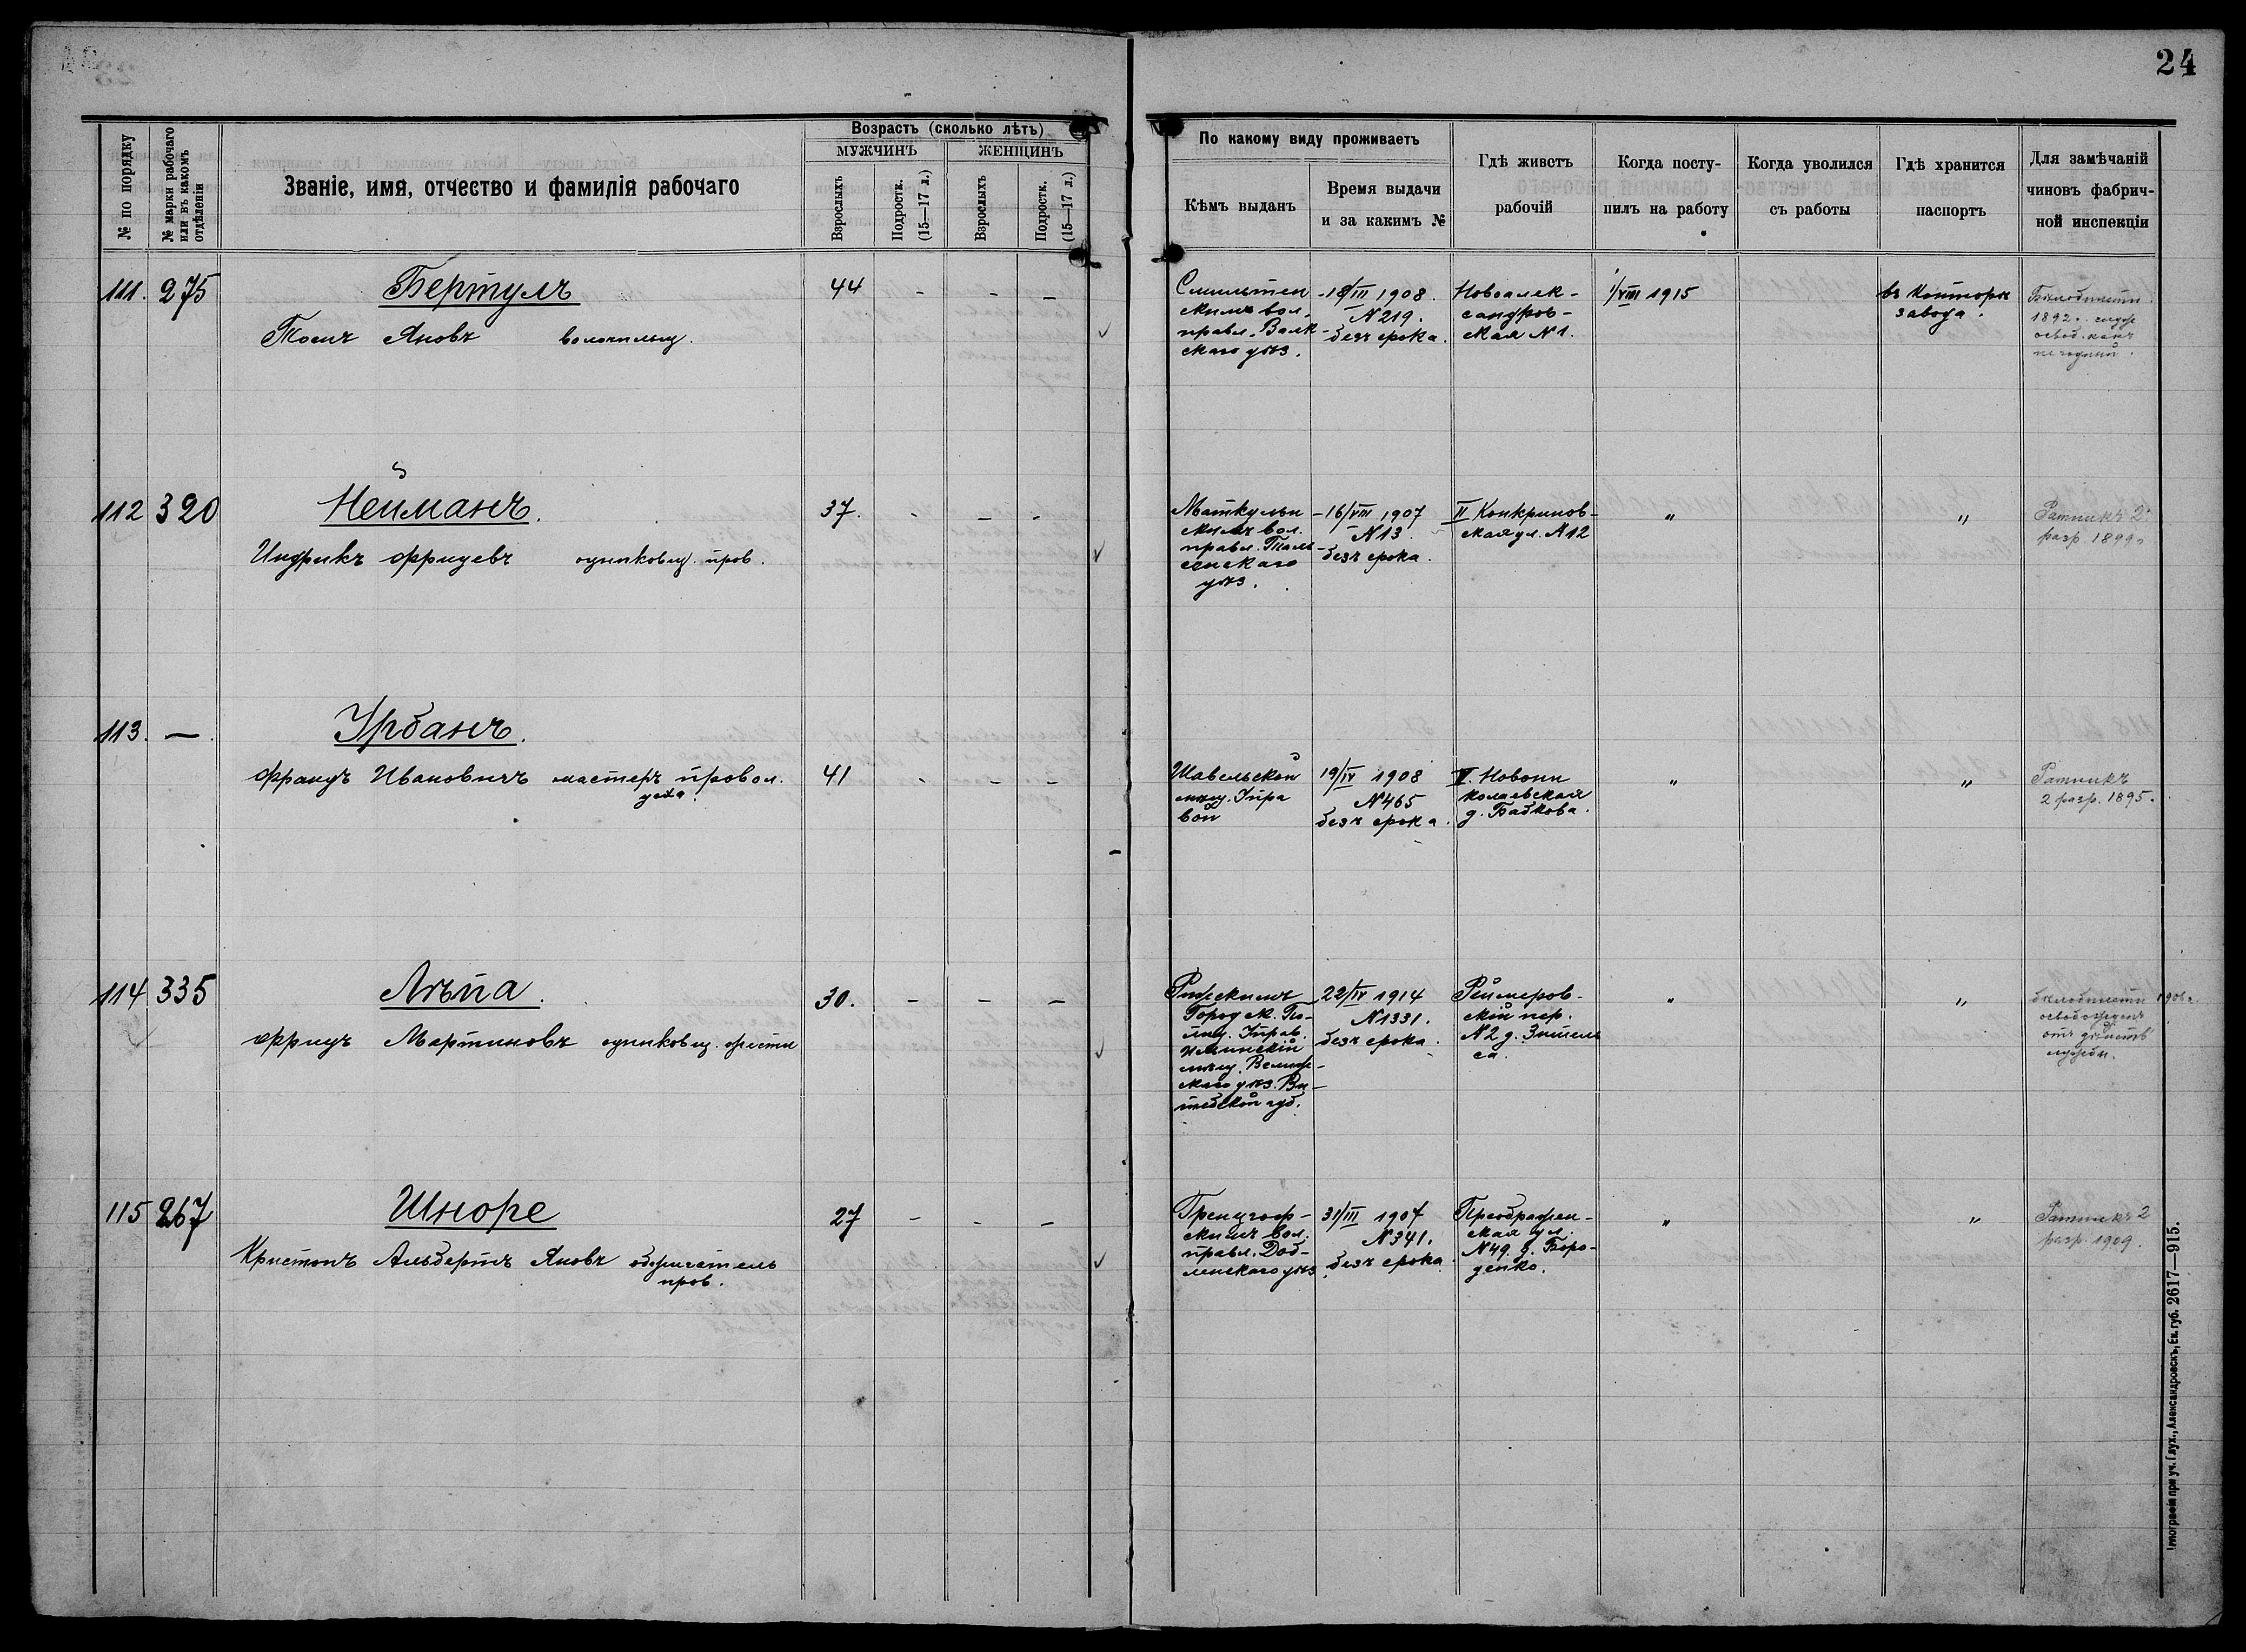 24
№ по порядку
№ марки рабочаго или въ какомъ отдѣленіи
Званіе, имя, отчество и фамилія рабочаго
Возрастъ (сколько лѣтъ)
МУЖЧИНЪ
ЖЕНЩИНЪ
Взрослыхъ
Подростк. (15—17 л.)
Взрослыхъ
Подростк. (15—17 л.)
По какому виду проживаетъ
Кѣмъ выданъ
Время выдачи
и за какимъ №
Гдѣ живетъ
рабочій
Когда посту-
пилъ на работу
Когда уволился
съ работы
Гдѣ хранится
паспортъ
Для замѣчаній
чиновъ фабрич-
ной инспекціи
111. 275
Бертулъ
Тоомъ Яновъ волочильщ.
44 - - -
Смильтен
скимъ вол.
правл. Валк-
скаго уѣз.
18/III 1908.
N 219.
безъ срока.
Новоалек-
сандров-
ская N 1.
1/VIII 1915
въ Конторѣ
завода.
1892г.
112 320
Нейманъ.
Индрикъ Фрицевъ оцинковщ. пров.
37. - - -
Маткульн
скимъ вол.
правл. Таль-
сенскаго
уѣз.
16/VIII 1907
N 13.
безъ срока.
II Конкринов-
ская ул. N 12
"
"
Ратникъ 2
разр. 1899г
113. —
Урбанъ.
Францъ Ивановичъ мастеръ провол.
цеха.
41 - - -
Шавельской
мѣщ. Упра
вой
19/IV 1908
N 465
безъ срока.
V. Новони
колаевская
д. Бабкова.
"
"
Ратникъ
2 разр. 1895.
114 335
Лѣпа.
Фрицъ Мартиновъ оцинковщ. жести
30. - - -
Рижскимъ
Город.
Управ.
мѣщ. Велиж-
скаго уѣз. Ви-
тебской губ.
22/IV 1914
N 1331.
безъ срока.
Реймеров-
скій пер.
N 2 д. Зишель
са.
"
"
1906г.
освобожденъ
отъ дѣйств
службы.
115 267
Шноре
Кристопъ Альбертъ Яновъ обжигатель
пров.
27 - - -
Гренцгоф-
скимъ вол.
правл. Доб-
ленскаго уѣз.
31/III 1907
N 341.
безъ срока
Преображен-
ская ул.
N 49. д. Боро-
денко.
"
"
Ратникъ 2
разр. 1909.
Типографія при уч. Глух., Александровскъ, Ек. губ. 2617—915.